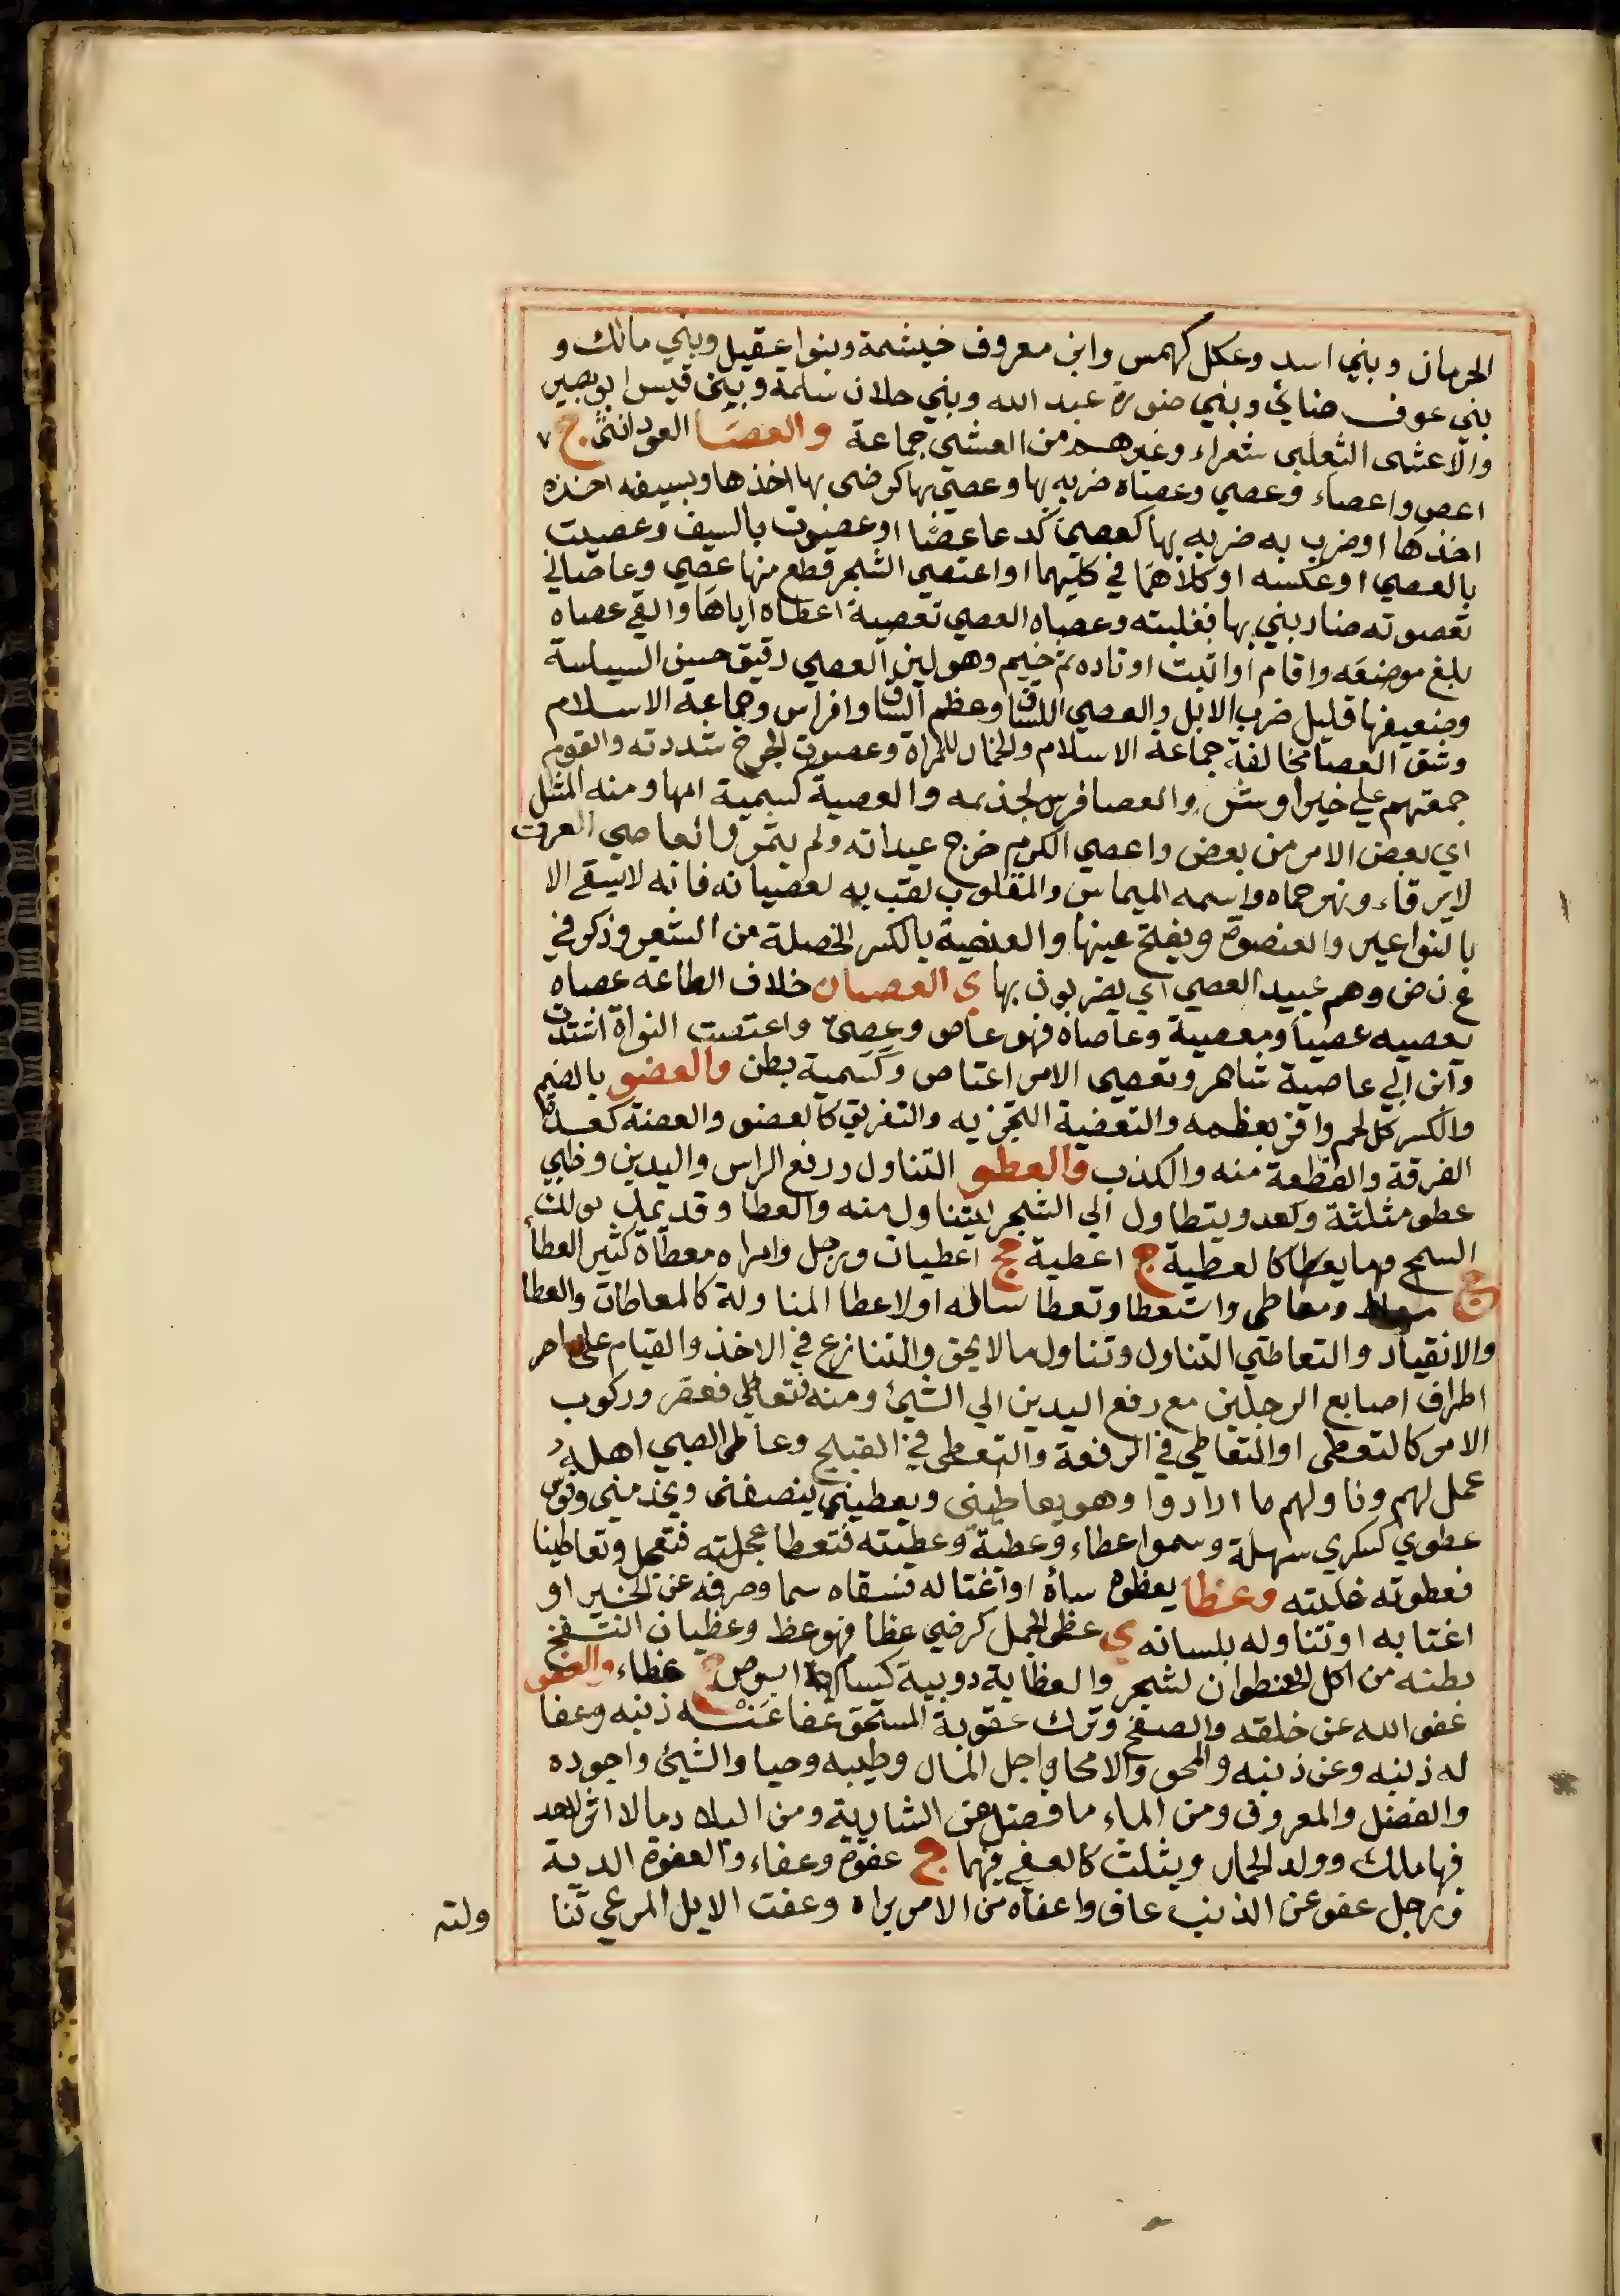 الحرمان وبني اسد وعكل كهمس وابن معروف خيثمة وبنوا عقيل وبني مالك و
بني عوف ضنائي وبني ضنورة عبد الله وبني حلان سلمة وبني قيس ابو بصير
والاعشى الثعلبي شعراء وغيرهم من العشي جماعة والعصا العود انثى ج
اعص واعصاء وعصي وعصاه ضربه بها وعصي بها كرضي بها اخذها وبسيفه اخذه
اخذها او ضرب به ضربه بها كعصي كدعا عصًا او عصوت بالسيف وعصيت
بالعصي او عكسه او كلاهما في كليهما او اعتصى الشجر قطع منها عصي وعاصاني
تعصوته ضاربني بها فغلبته وعصاه العصي تعصية اعطاه اياها والقي عصاه
بلغ موضعه واقام او اثبت اوتاده ثم خيم وهو لين العصي رقيق حسن السياسة
وضعيفها قليل ضرب الابل والعصي اللسان وعظم الساق وافراس وجماعة الاسلام
وشق العصا مخالفة جماعة الاسلام والخمار للمراة وعصوت الجرح شددته والقوم
جمعتهم علي خير او شر والعصا فرس لجذيمه والعصية كسمية امها ومنه المثل
اي بعض الامر من بعض واعصي الكرم خرج عيدانه ولم يثمر والعاصي العرق
لا يرقاء ونهر حماه واسمه الميماس والمقلوب لقب به لعصيانه فانه لا يسقي الا
بالنواعير والعنصوة ويفتح عينها والعنصية بالكسر الخصلة من الشعر وذكر في
ع ن ص وهم عبيد العصي اي يضربون بها ي العصيان خلاف الطاعه عصاه
يعصيه عصيا ومعصية وعاصاه فهو عاص وعصي واعتصت النواة اشتدت
وابن ابي عاصية شاعر وتعصي الامر اعتاص وكسمية بطن والعضو بالضم
والكسر كل لحم وافر بعظمه والتعضية التجزيه والتفريق كالعضو والعضة كعدة
الفرقة والقطعة منه والكذب والعطو التناول ورفع الراس واليدين وظبي
عطو مثلثة وكعدو يتطاول الي الشجر ليتناول منه والعطا وقد يمد نولك
السمح وما يعطا كالعطية ج اعطية جج اعطيات ورجل وامراه معطاة كثير العطا
ج ومعاطي واستعطا وتعطا ساله او لاعطا المناولة كالمعاطات والعطا
والانقياد والتعاطي التناول وتناول ما لا يحق والتنازع في الاخذ والقيام على
اطراف اصابع الرجلين مع رفع اليدين الي الشيئ ومنه فتعاطي فعقر وركوب
الامر كالتعطي او التعاطي في الرفعة والتعطي في القبيح وعاطي الصبي اهله
عمل لهم وناولهم ما ارادوا وهو يعاطيني ويعطيني ينصفني ويخدمني وقوس
عطوي كسكري سهلة وسموا عطاء وعطية وعطيته فتعطا عجلته فتعجل وتعاطينا
فعطوته غلبته وعظا يعظوه ساة او اغتاله فسقاه سما وصرفه عن الخير او
اغتابه او تناوله بلسانه ي عظى الجمل كرضي عظا فهو عظ وعظيان انتفخ
بطنه من اكل العنظوان لشجر والعظاية دويبة كسام ابرص ج عظاء والعفو
عفو الله عن خلقه والصفح وترك عقوبة المستحق عفا عنه ذنبه وعفا
له ذنبه وعن ذنبه والمحو والامحا واجل المال وطيبه وحيا والشيئ واجوده
والفضل والمعروف ومن الماء ما فضل عن الشاربة ومن البلاد ما لا اثر لاحد
فيها ملك وولد الحمار ويثلث كالعفي فيهما ج عفوة وعفاء والعفوة الدية
ورجل عفو عن الذنب عاف واعفاه من الامر براه وعفت الابل المرعي تنا
ولته